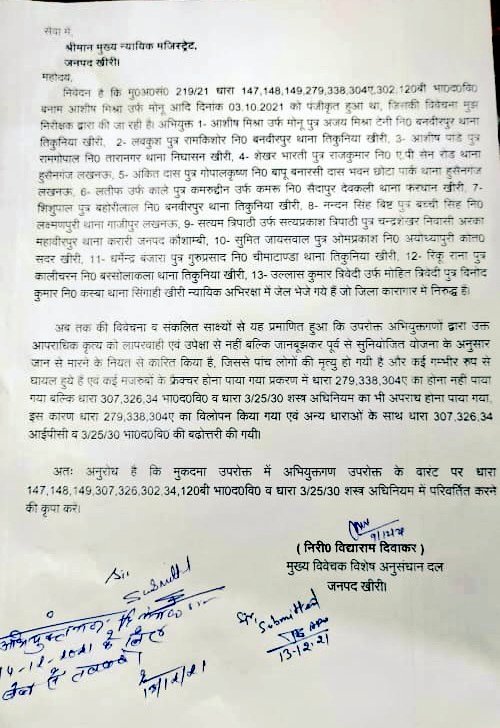 सेवा में,
श्रीमान मुख्य न्यायिक मजिस्ट्रेट,
जनपद खीरी।
महोदय,
निवेदन है कि मु0अ0सं0 219/21 धारा 147,148,149,279,338,304ए,302,120बी भा0द0वि0
बनाम आशीष मिश्रा उर्फ मोनू आदि दिनांक 03.10.2021 को पंजीकृत हुआ था, जिसकी विवेचना मुझ
निरीक्षक द्वारा की जा रही है। अभियुक्त 1- आशीष मिश्रा उर्फ मोनू पुत्र अजय मिश्रा टेनी नि0 बनवीरपुर थाना
तिकुनिया खीरी, 2- लवकुश पुत्र रामकिशोर नि0 बनवीरपुर थाना तिकुनिया खीरी, 3- आशीष पांडे पुत्र
रामगोपाल नि0 तारानगर थाना निघासन खीरी, 4- शेखर भारती पुत्र राजकुमार नि0 ए.पी सेन रोड थाना
हुसैनगंज लखनऊ, 5- अंकित दास पुत्र गोपालकृष्ण नि0 बापू बनारसी दास भवन छोटा पार्क थाना हुसैनगंज
लखनऊ, 6- लतीफ उर्फ काले पुत्र कमरुद्दीन उर्फ कमरू नि0 सैदापुर देवकली थाना फरधान खीरी, 7-
शिशुपाल पुत्र बहोरीलाल नि0 बनवीरपुर थाना तिकुनिया खीरी, 8- नन्दन सिंह बिष्ट पुत्र बच्ची सिंह नि0
लक्ष्मणपुरी थाना गाजीपुर लखनऊ, 9- सत्यम त्रिपाठी उर्फ सत्यप्रकाश त्रिपाठी पुत्र चन्द्रशेखर निवासी अरका
महावीरपुर थाना करारी जनपद कौशाम्बी, 10- सुमित जायसवाल पुत्र ओमप्रकाश नि0 अयोध्यापुरी कोत0
सदर खीरी, 11- धर्मेन्द्र बंजारा पुत्र गुरुप्रसाद नि0 चीमाटाण्डा थाना तिकुनिया खीरी, 12- रिंकू राना पुत्र
कालीचरन नि0 बरसोलाकला थाना तिकुनिया खीरी, 13- उल्लास कुमार त्रिवेदी उर्फ मोहित त्रिवेदी पुत्र विनोद
कुमार नि0 कस्बा थाना सिंगाही खीरी न्यायिक अभिरक्षा में जेल भेजे गये हैं जो जिला कारागार में निरुद्ध है।
अब तक की विवेचना व संकलित साक्ष्यों से यह प्रमाणित हुआ कि उपरोक्त अभियुक्तगणों द्वारा उक्त
आपराधिक कृत्य को लापरवाही एवं उपेक्षा से नहीं बल्कि जानबूझकर पूर्व से सुनियोजित योजना के अनुसार
जान से मारने के नियत से कारित किया है, जिससे पांच लोगों की मृत्यु हो गयी है और कई गम्भीर रुप से
घायल हुये है एवं कई मजरुबों के फ्रैक्चर होना पाया गया प्रकरण में धारा 279,338,304ए का होना नही पाया
गया बल्कि धारा 307,326,34 भा0द0वि0 व धारा 3/25/30 शस्त्र अधिनियम का भी अपराध होना पाया गया,
इस कारण धारा 279,338,304ए का विलोपन किया गया एवं अन्य धाराओं के साथ धारा 307,326,34
आईपीसी व 3/25/30 भा0द0वि0 की बढोत्तरी की गयी।
अतः अनुरोध है कि मुकदमा उपरोक्त में अभियुक्तगण उपरोक्त के वारंट पर धारा
147,148,149,307,326,302,34,120बी भा0द0वि0 व धारा 3/25/30 शस्त्र अधिनियम में परिवर्तित करने
की कृपा करें।
9/12/21
( निरी0 विद्याराम दिवाकर )
मुख्य विवेचक विशेष अनुसंधान दल
जनपद खीरी।
Sir
Submitted
14-12-2021 के लिए
जेल से तलब
13/12/21
Sir,
Submitted
13-12-21